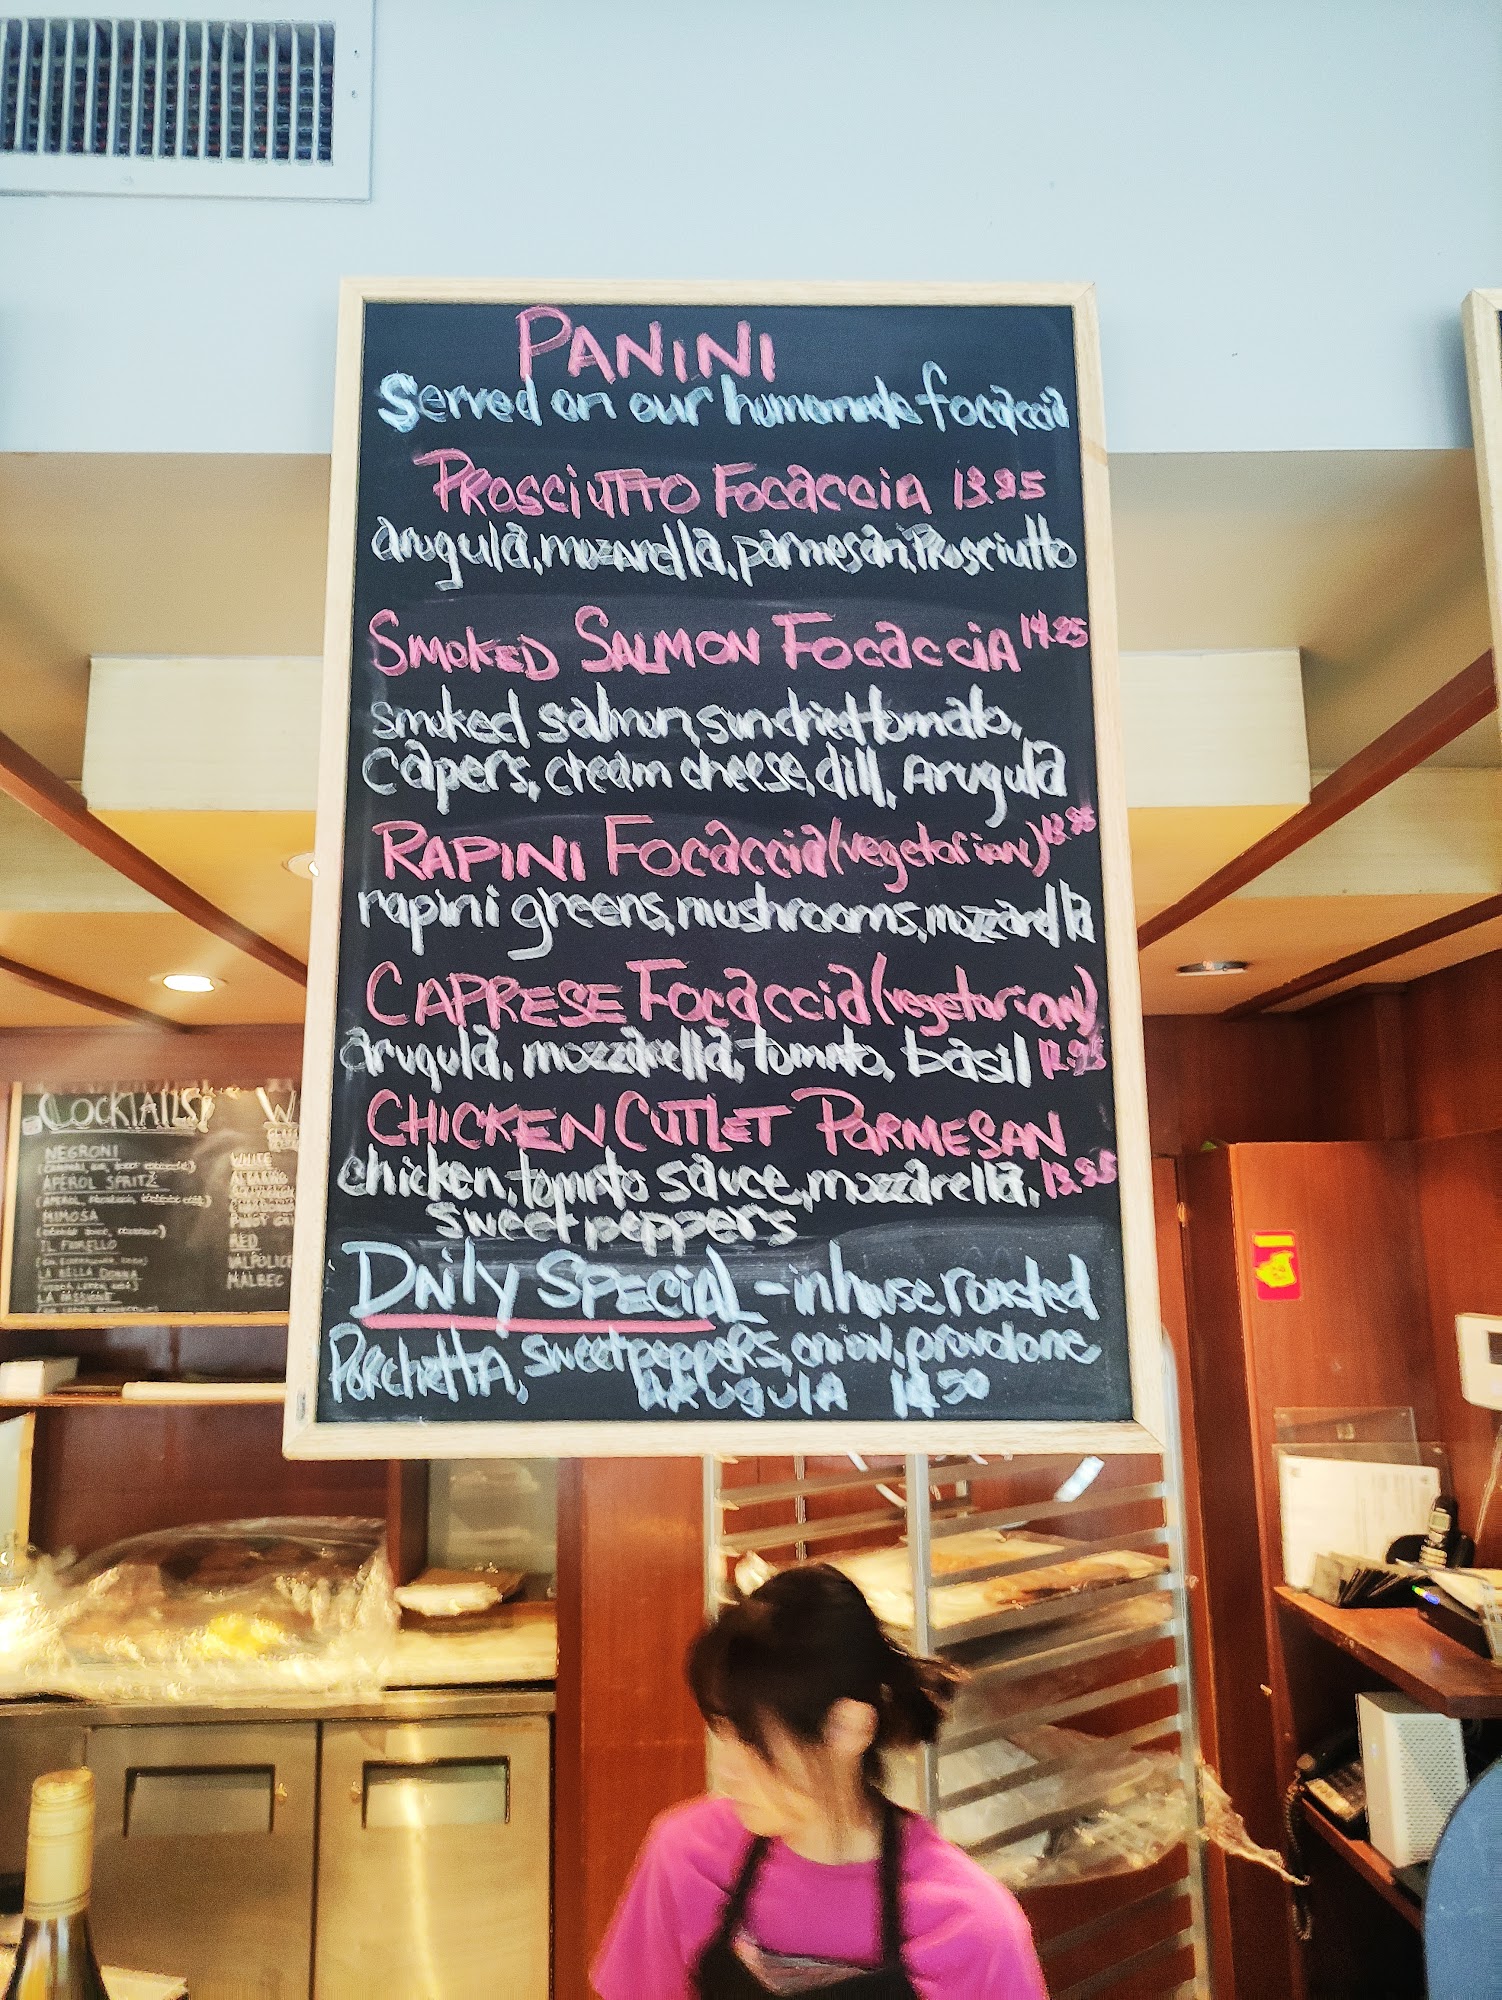 PANINI
Served on our homemade focaccia
PROSCIUTTO FOCACCIA 13.95
arugula, mozzarella, parmesan, Prosciutto
SMOKED SALMON FOCACCIA 14.25
smoked salmon, sundried tomato,
Capers, cream cheese, dill, Arugula
RAPINI FOCACCIA (vegetarian)
rapini greens, mushrooms, mozzarella
CAPRESE FOCACCIA (vegetarian)
arugula, mozzarella, tomato, basil
CHICKEN CUTLET PARMESAN
chicken, tomato sauce, mozzarella, 13.95
sweet peppers
DAILY SPECIAL - in house roasted
Porchetta, sweet peppers, onion, provolone
ARUGULA 14.50
COCKTAILS!
NEGRONI
APEROL SPRITZ
MIMOSA
IL FURELLO
LA BELLA DONNA
WHITE
PINOT GRI
RED
VALPOLICE
MALBEC